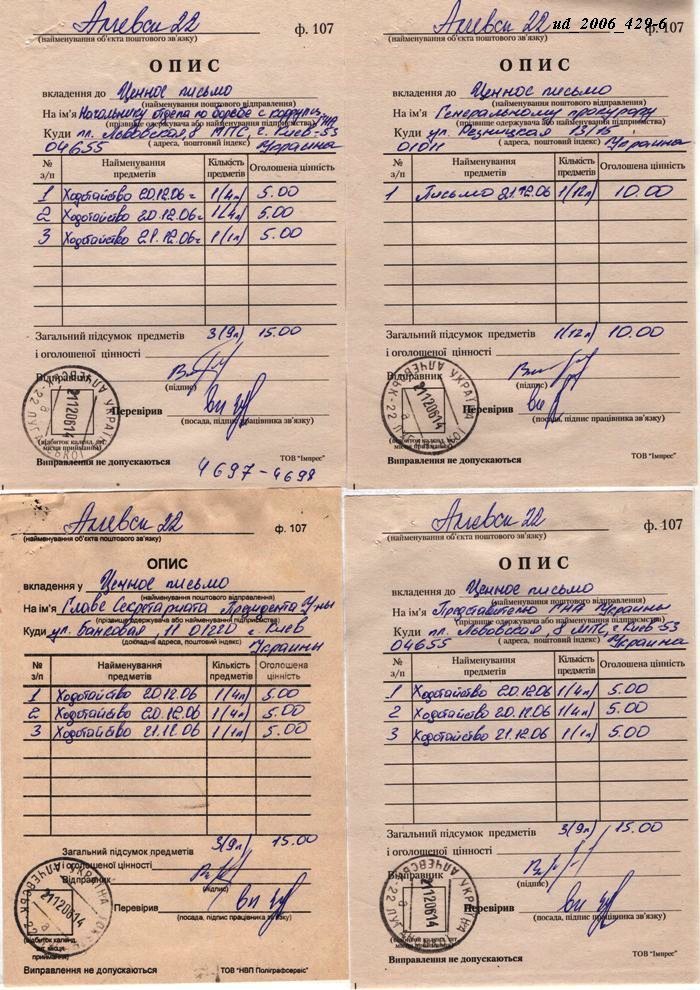 Алчевск 22
ф. 107
(найменування об'єкта поштового зв'язку)
ОПИС
вкладення до Ценное письмо
(найменування поштового відправлення)
На ім'я Начальнику отдела по борьбе с коррупц.
(прізвище одержувача або найменування підприємства)
Куди пл. Львовская 8 МПС, г. Киев-53
04655 (адреса, поштовий індекс) Украина
№ з/п Найменування предметів Кількість предметів Оголошена цінність
1 Ходотайство 20.12.06г 1(4л) 5.00
2 Ходотайство 20.12.06г 1(4л) 5.00
3 Ходотайство 21.12.06г 1(1л) 5.00
Загальний підсумок предметів 3(9л) 15.00
і оголошеної цінності
Відправник
(підпис)
Перевірив
(посада, підпис працівника зв'язку)
УКРАЇНА АЛЧЕВСЬК-22
21120614
а
(відбиток календ. шт. місця приймання)
Виправлення не допускаються
ТОВ "Імпрес"
4697-4698
Алчевск 22
ud_2006_429-6
ф. 107
(найменування об'єкта поштового зв'язку)
ОПИС
вкладення до Ценное письмо
(найменування поштового відправлення)
На ім'я Генеральному прокурору
(прізвище одержувача або найменування підприємства)
Куди ул. Резницкая 13/15
01011 (адреса, поштовий індекс) Украина
№ з/п Найменування предметів Кількість предметів Оголошена цінність
1 Письмо 21.12.06 1(12л) 10.00
Загальний підсумок предметів 1(12л) 10.00
і оголошеної цінності
Відправник
(підпис)
Перевірив
(посада, підпис працівника зв'язку)
УКРАЇНА АЛЧЕВСЬК-22
21120614
а
(відбиток календ. шт. місця приймання)
Виправлення не допускаються
ТОВ "Імпрес"
Алчевск 22
ф. 107
(найменування об'єкта поштового зв'язку)
ОПИС
вкладення у Ценное письмо
(найменування поштового відправлення)
На ім'я Главе Секретариата Президента У-ны
(прізвище одержувача або найменування підприємства)
Куди ул. Банковая, 11 01220 г. Киев
(докладна адреса, поштовий індекс) Украины
№ з/п Найменування предметів Кількість предметів Оголошена цінність
1 Ходотайство 20.12.06 1(4л) 5.00
2 Ходотайство 20.12.06 1(4л) 5.00
3 Ходотайство 21.12.06 1(1л) 5.00
Загальний підсумок предметів 3(9л) 15.00
і оголошеної цінності
Відправник
(підпис)
Перевірив
(посада, підпис працівника зв'язку)
УКРАЇНА АЛЧЕВСЬК-22
21120614
а
(відбиток календ. шт. місця приймання)
Виправлення не допускаються
ТОВ "НВП Поліграфсервіс"
Алчевск 22
ф. 107
(найменування об'єкта поштового зв'язку)
ОПИС
вкладення до Ценное письмо
(найменування поштового відправлення)
На ім'я Представителю Украины
(прізвище одержувача або найменування підприємства)
Куди пл. Львовская, 8 МПС, г. Киев-53
04655 (адреса, поштовий індекс) Украина
№ з/п Найменування предметів Кількість предметів Оголошена цінність
1 Ходотайство 20.12.06 1(4л) 5.00
2 Ходотайство 20.12.06 1(4л) 5.00
3 Ходотайство 21.12.06 1(1л) 5.00
Загальний підсумок предметів 3(9л) 15.00
і оголошеної цінності
Відправник
(підпис)
Перевірив
(посада, підпис працівника зв'язку)
УКРАЇНА АЛЧЕВСЬК-22
21120614
а
(відбиток календ. шт. місця приймання)
Виправлення не допускаються
ТОВ "Імпрес"